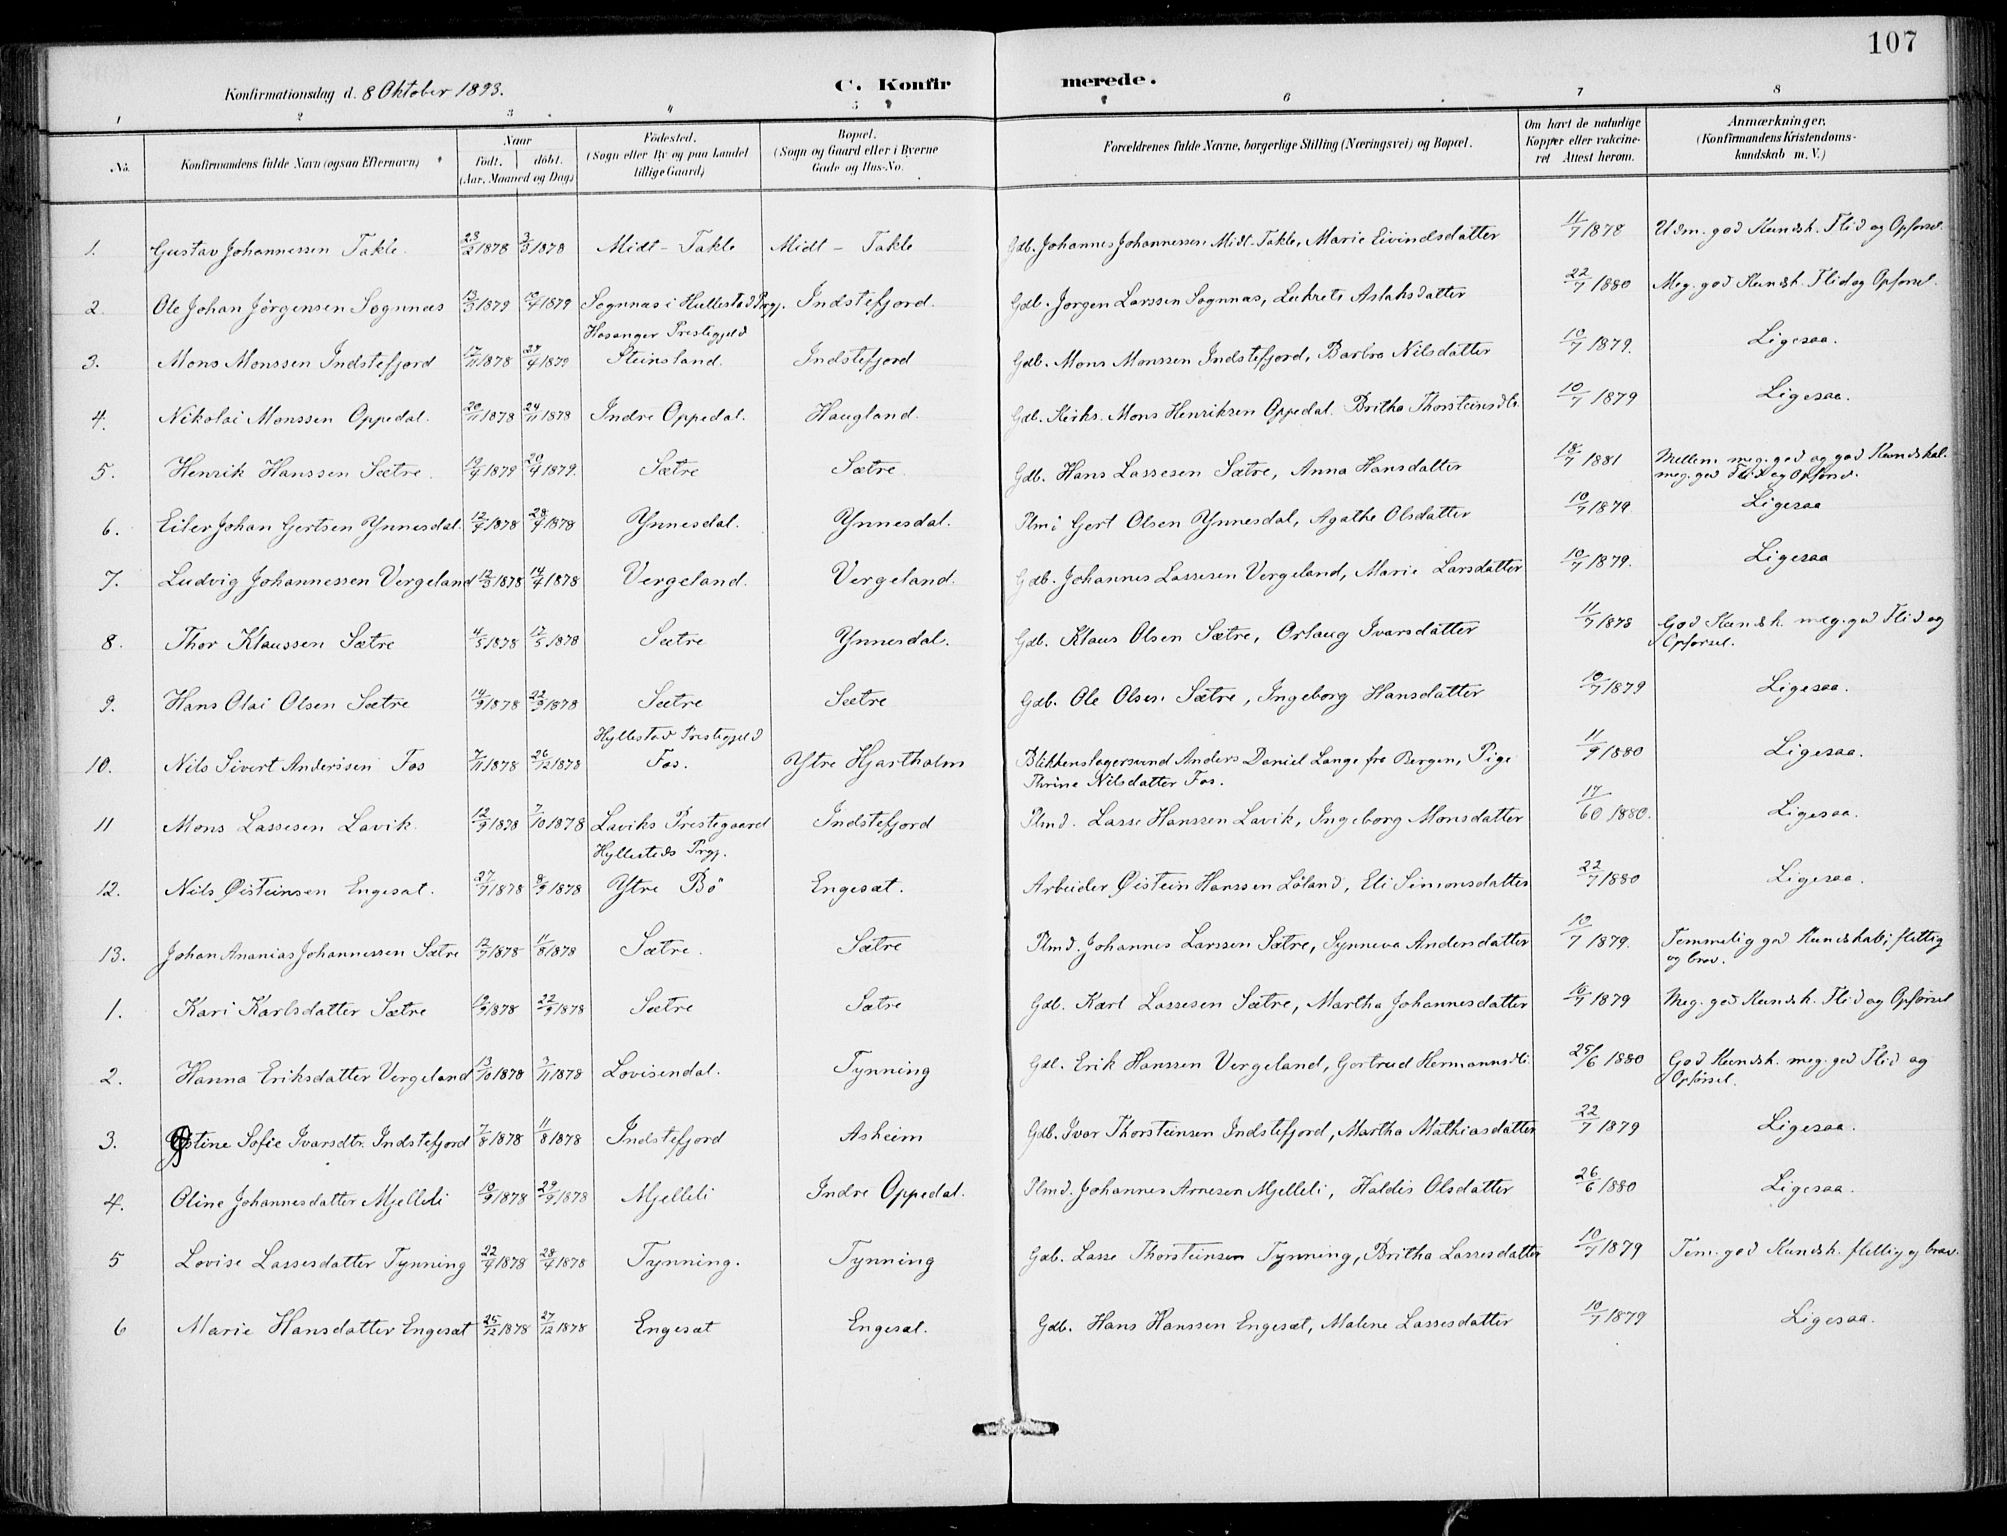 107
Konfirmationsdag d. 8 Oktober 1893.
C. Konfirmerede.
1 2 3 4 5 6 7 8
No.
Konfirmandens fulde Navn (ogsaa Efternavn)
Naar født. døbt. (Aar, Maaned og Dag)
Fødested. (Sogn eller By og paa Landet tillige Gaard)
Bopæl. (Sogn og Gaard eller i Byerne Gade og Hus-No.
Forældrenes fulde Navne, borgerlige Stilling (Næringsvei) og Bopæl.
Om havt de naturlige Kopper eller vakcineret Attest herom.
Anmærkninger. (Konfirmandens Kristendomskundskab m. V.)
1. Gustav Johannessen Takle. 23/2 1878 3/3 1878 Midt-Takle Midt-Takle Gdb. Johannes Johannessen Midt-Takle, Marie Eivindsdatter 11/7 1878 Udm. god Kundsk. Flid og Opførsel.
2. Ole Johan Jörgensen Sognnæs 12/3 1879 12/4 1879 Sognnæs i Hullestad Prgj. Indstefjord. Gdb. Jörgen Larssen Sognnæs, Lukrets Aslaksdatter 22/7 1880 Meg. god Kundsk. Flid og Opførsel.
3. Mons Monssen Indstefjord 17/11 1878 27/4 1879 Hosanger Prestegjeld Steinsland. Indstefjord Gdb. Mons Monssen Indstefjord, Barbra Nilsdatter 10/7 1879. Ligesaa.
4. Nikolai Monssen Oppedal. 20/11 1878 24/11 1878 Indre Oppedal. Haugland. Gdb. Kirks. Mons Henriksen Oppedal. Britha Thorsteinsdtr. 10/7 1879 Ligesaa.
5. Henrik Hanssen Sætre. 19/4 1879 20/4 1879. Sætre Sætre Gdb. Hans Lassesen Sætre, Anna Hansdatter 18/7 1881 Mellem meg. god og god Kundskab. meg. god Flid og Opførsel.
6. Eiler Johan Gertsen Ynnesdal. 12/4 1878 28/4 1878 Ynnesdal. Ynnesdal. Plmd Gert Olsen Ynnesdal, Agathe Olsdatter 10/7 1879 Ligesaa
7. Ludvig Johannessen Vergeland 12/3 1878 14/4 1878 Vergeland. Vergeland. Gdb. Johannes Lassesen Vergeland, Marie Larsdatter 10/7 1879. Ligesaa
8. Thor Klaussen Sætre 4/5 1878 12/5 1878 Sætre Ynnesdal. Gdb. Klaus Olsen Sætre, Orlaug Ivarsdatter 11/7 1878 God Kundsk. meg. god Flid og Opførsel.
9. Hans Olai Olsen Sætre 14/9 1878 22/9 1878 Sætre Sætre Gdb. Ole Olsen Sætre, Ingeborg Hansdatter 10/7 1879 Ligesaa.
10. Nils Sivert Anderssen Fos 7/11 1878 26/12 1878 Hyllestad Prestegjeld Fos. Ytre Hjartholm Blikkenslagersvend Anders Daniel Lange fra Bergen, Pige Thrine Nilsdatter Fos. 11/9 1880 Ligesaa.
11 Mons Lassesen Lavik. 12/9 1878 7/10 1878 Laviks Prestegaard Indstefjord Plmd. Lasse Hanssen Lavik, Ingeborg Monsdatter 17/60 1880. Ligesaa.
12. Nils Øisteinsen Engesæt. 27/7 1878 8/9 1878 Hyllestads Prgj. Ytre Bö Engesæt. Arbeider Øistein Hanssen Löland, Eli Simonsdatter 22/7 1880 Ligesaa.
13. Johan Ananias Johannessen Sætre 12/7 1878 11/8 1878 Sætre. Sætre Plmd. Johannes Larssen Sætre, Synneva Andersdatter 10/7 1879. Temmelig god Kundskab; flittig og brav.
1. Kari Karlsdatter Sætre 10/9 1878 22/9 1878 Sætre Sætre Gdb. Karl Lassesen Sætre, Martha Johannesdatter 10/7 1879 Meg. god Kundsk. Flid og Opførsel
2. Hanna Eriksdatter Vergeland 13/10 1878 3/11 1878 Lovisendal. Tynning Gdb. Erik Hanssen Vergeland, Gjertrud Hermannsdtr. 25/6 1880 God Kundsk. meg. god Flid og Opførsel.
3. Jstine Sofie Ivarsdtr. Indstefjord 7/8 1878 11/8 1878 Indstefjord Asheim Gdb. Ivar Thorsteinsen Indstefjord, Martha Mathiasdatter 22/7 1879 Ligesaa.
4. Oline Johannesdatter Mjelleli 10/9 1878 29/9 1878 Mjelleli Indre Oppedal. Plmd. Johannes Arnesen Mjelleli, Haldis Olsdatter 26/6 1880 Ligesaa.
5 Lovise Lassesdatter Tynning 22/4 1878 28/4 1878 Tynning. Tynning Gdb. Lasse Thorsteinsen Tynning, Britha Lassesdatter 10/7 1879 Tem. god Kundsk. flittig og brav.
6 Marie Hansdatter Engesæt 25/12 1878 27/12 1878 Engesæt Engesæt. Gdb. Hans Hanssen Engesæt, Malene Lassesdatter 10/7 1879 Ligesaa.